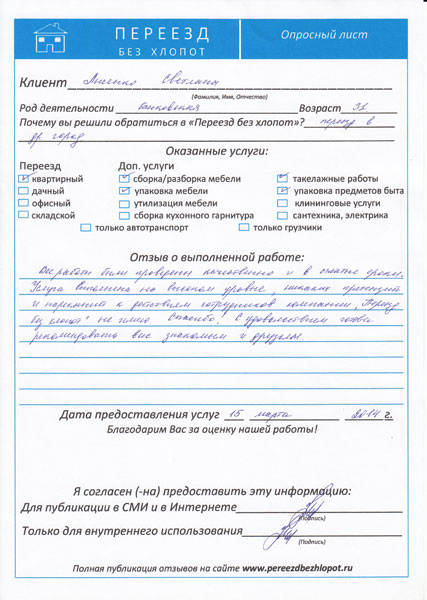 ПЕРЕЕЗД
БЕЗ ХЛОПОТ
Опросный лист
Клиент Лысенко Светлана
(Фамилия, Имя, Отчество)
Род деятельности Банковская Возраст 31
Почему вы решили обратиться в «Переезд без хлопот»? переезд в
др город
Оказанные услуги:
Переезд Доп. услуги
квартирный сборка/разборка мебели такелажные работы
дачный упаковка мебели упаковка предметов быта
офисный утилизация мебели клининговые услуги
складской сборка кухонного гарнитура сантехника, электрика
только автотранспорт только грузчики
Отзыв о выполненной работе:
Все работы были проведены качественно и в сроки.
Услуга выполнена на высоком уровне, никаких претензий
и к действиям сотрудников компании „Переезд
без хлопот" не имею. Спасибо! С удовольствием готова
рекомендовать вас знакомым и друзьям.
Дата предоставления услуг 15 марта 2014 г.
Благодарим Вас за оценку нашей работы!
Я согласен (-на) предоставить эту информацию:
Для публикации в СМИ и в Интернете
(Подпись)
Только для внутреннего использования
(Подпись)
Полная публикация отзывов на сайте www.pereezdbezhlopot.ru